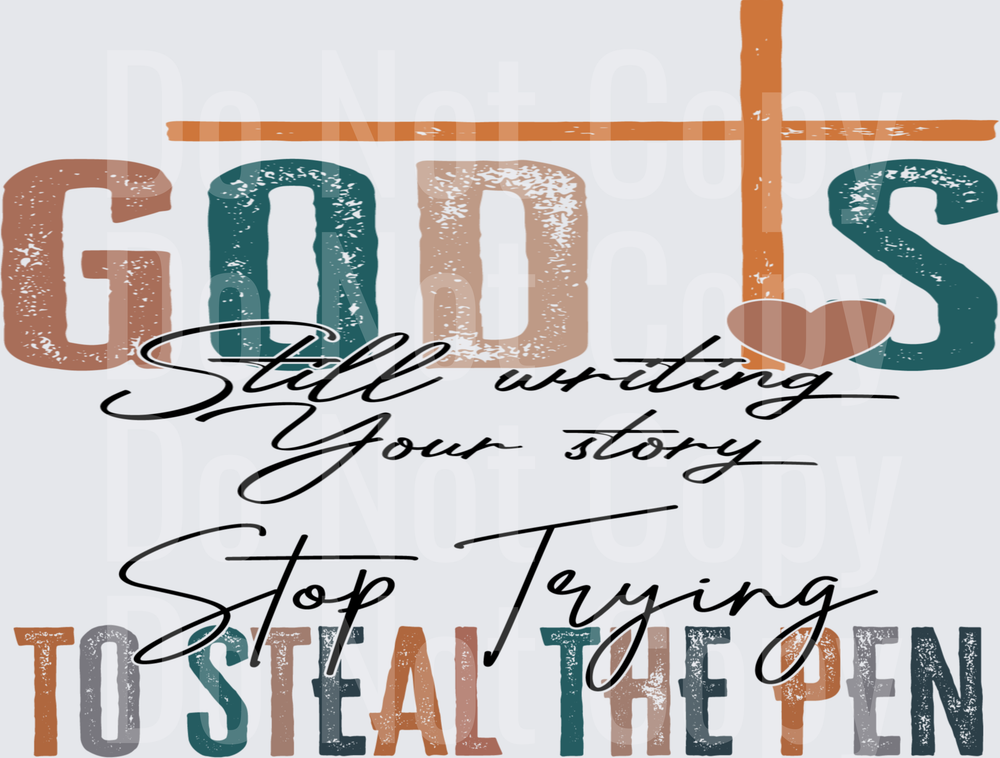 GOD IS
Still writing
Your story
Stop Trying
TO STEAL THE PEN
Do Not Copy
Do Not Copy
Do Not Copy
Do Not Copy